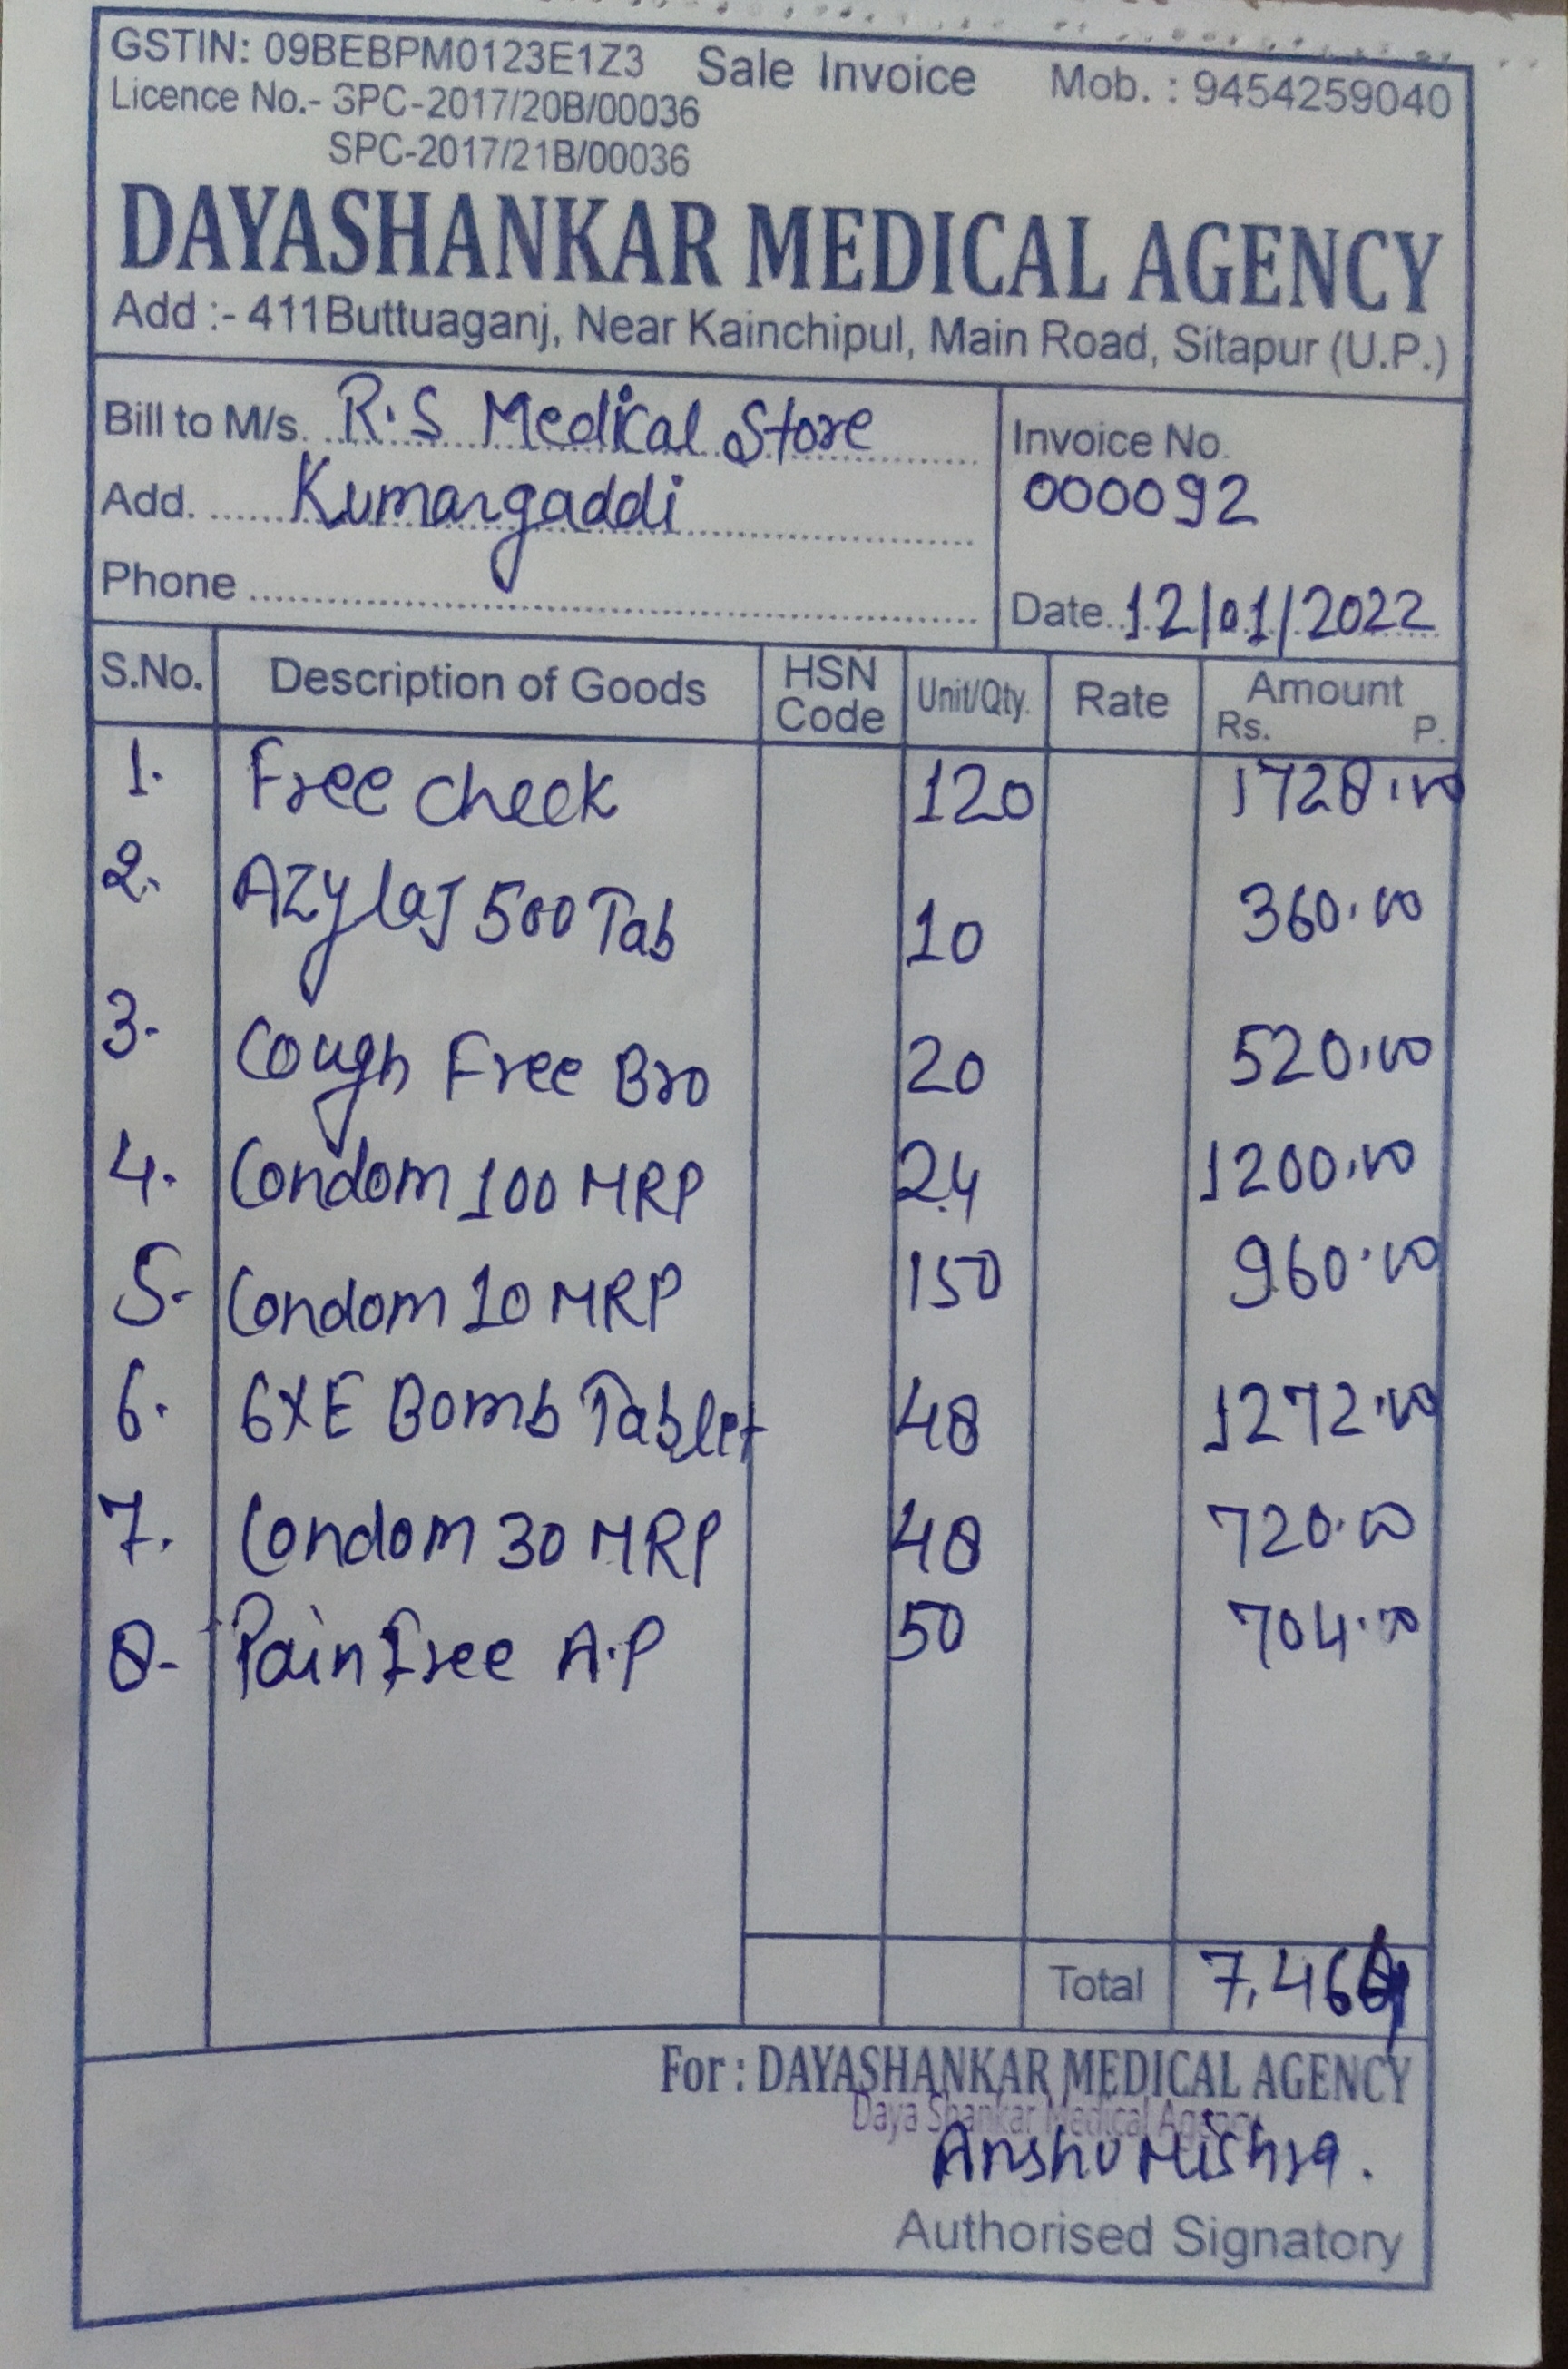 GSTIN: 09BEBPM0123E1Z3 Sale Invoice Mob. : 9454259040
Licence No.- SPC-2017/20B/00036
SPC-2017/21B/00036
DAYASHANKAR MEDICAL AGENCY
Add :- 411Buttuaganj, Near Kainchipul, Main Road, Sitapur (U.P.)
Bill to M/s. R.S Medical Store
Add. Kumargaddi
Phone
Invoice No.
000092
Date 12/01/2022
S.No. Description of Goods HSN Code Unit/Qty. Rate Amount Rs. P.
1. Free check 120 1728.00
2. AZylaJ 500 Tab 10 360.00
3. Cough Free Bro 20 520.00
4. Condom 100 MRP 24 1200.00
5. Condom 10 MRP 150 960.00
6. 6XE Bomb Tablet 48 1272.00
7. Condom 30 MRP 48 720.00
8- Pain Free A.P 50 704.00
Total
For : DAYASHANKAR MEDICAL AGENCY
Daya Shankar Medical Agency
Anshu Mishra.
Authorised Signatory